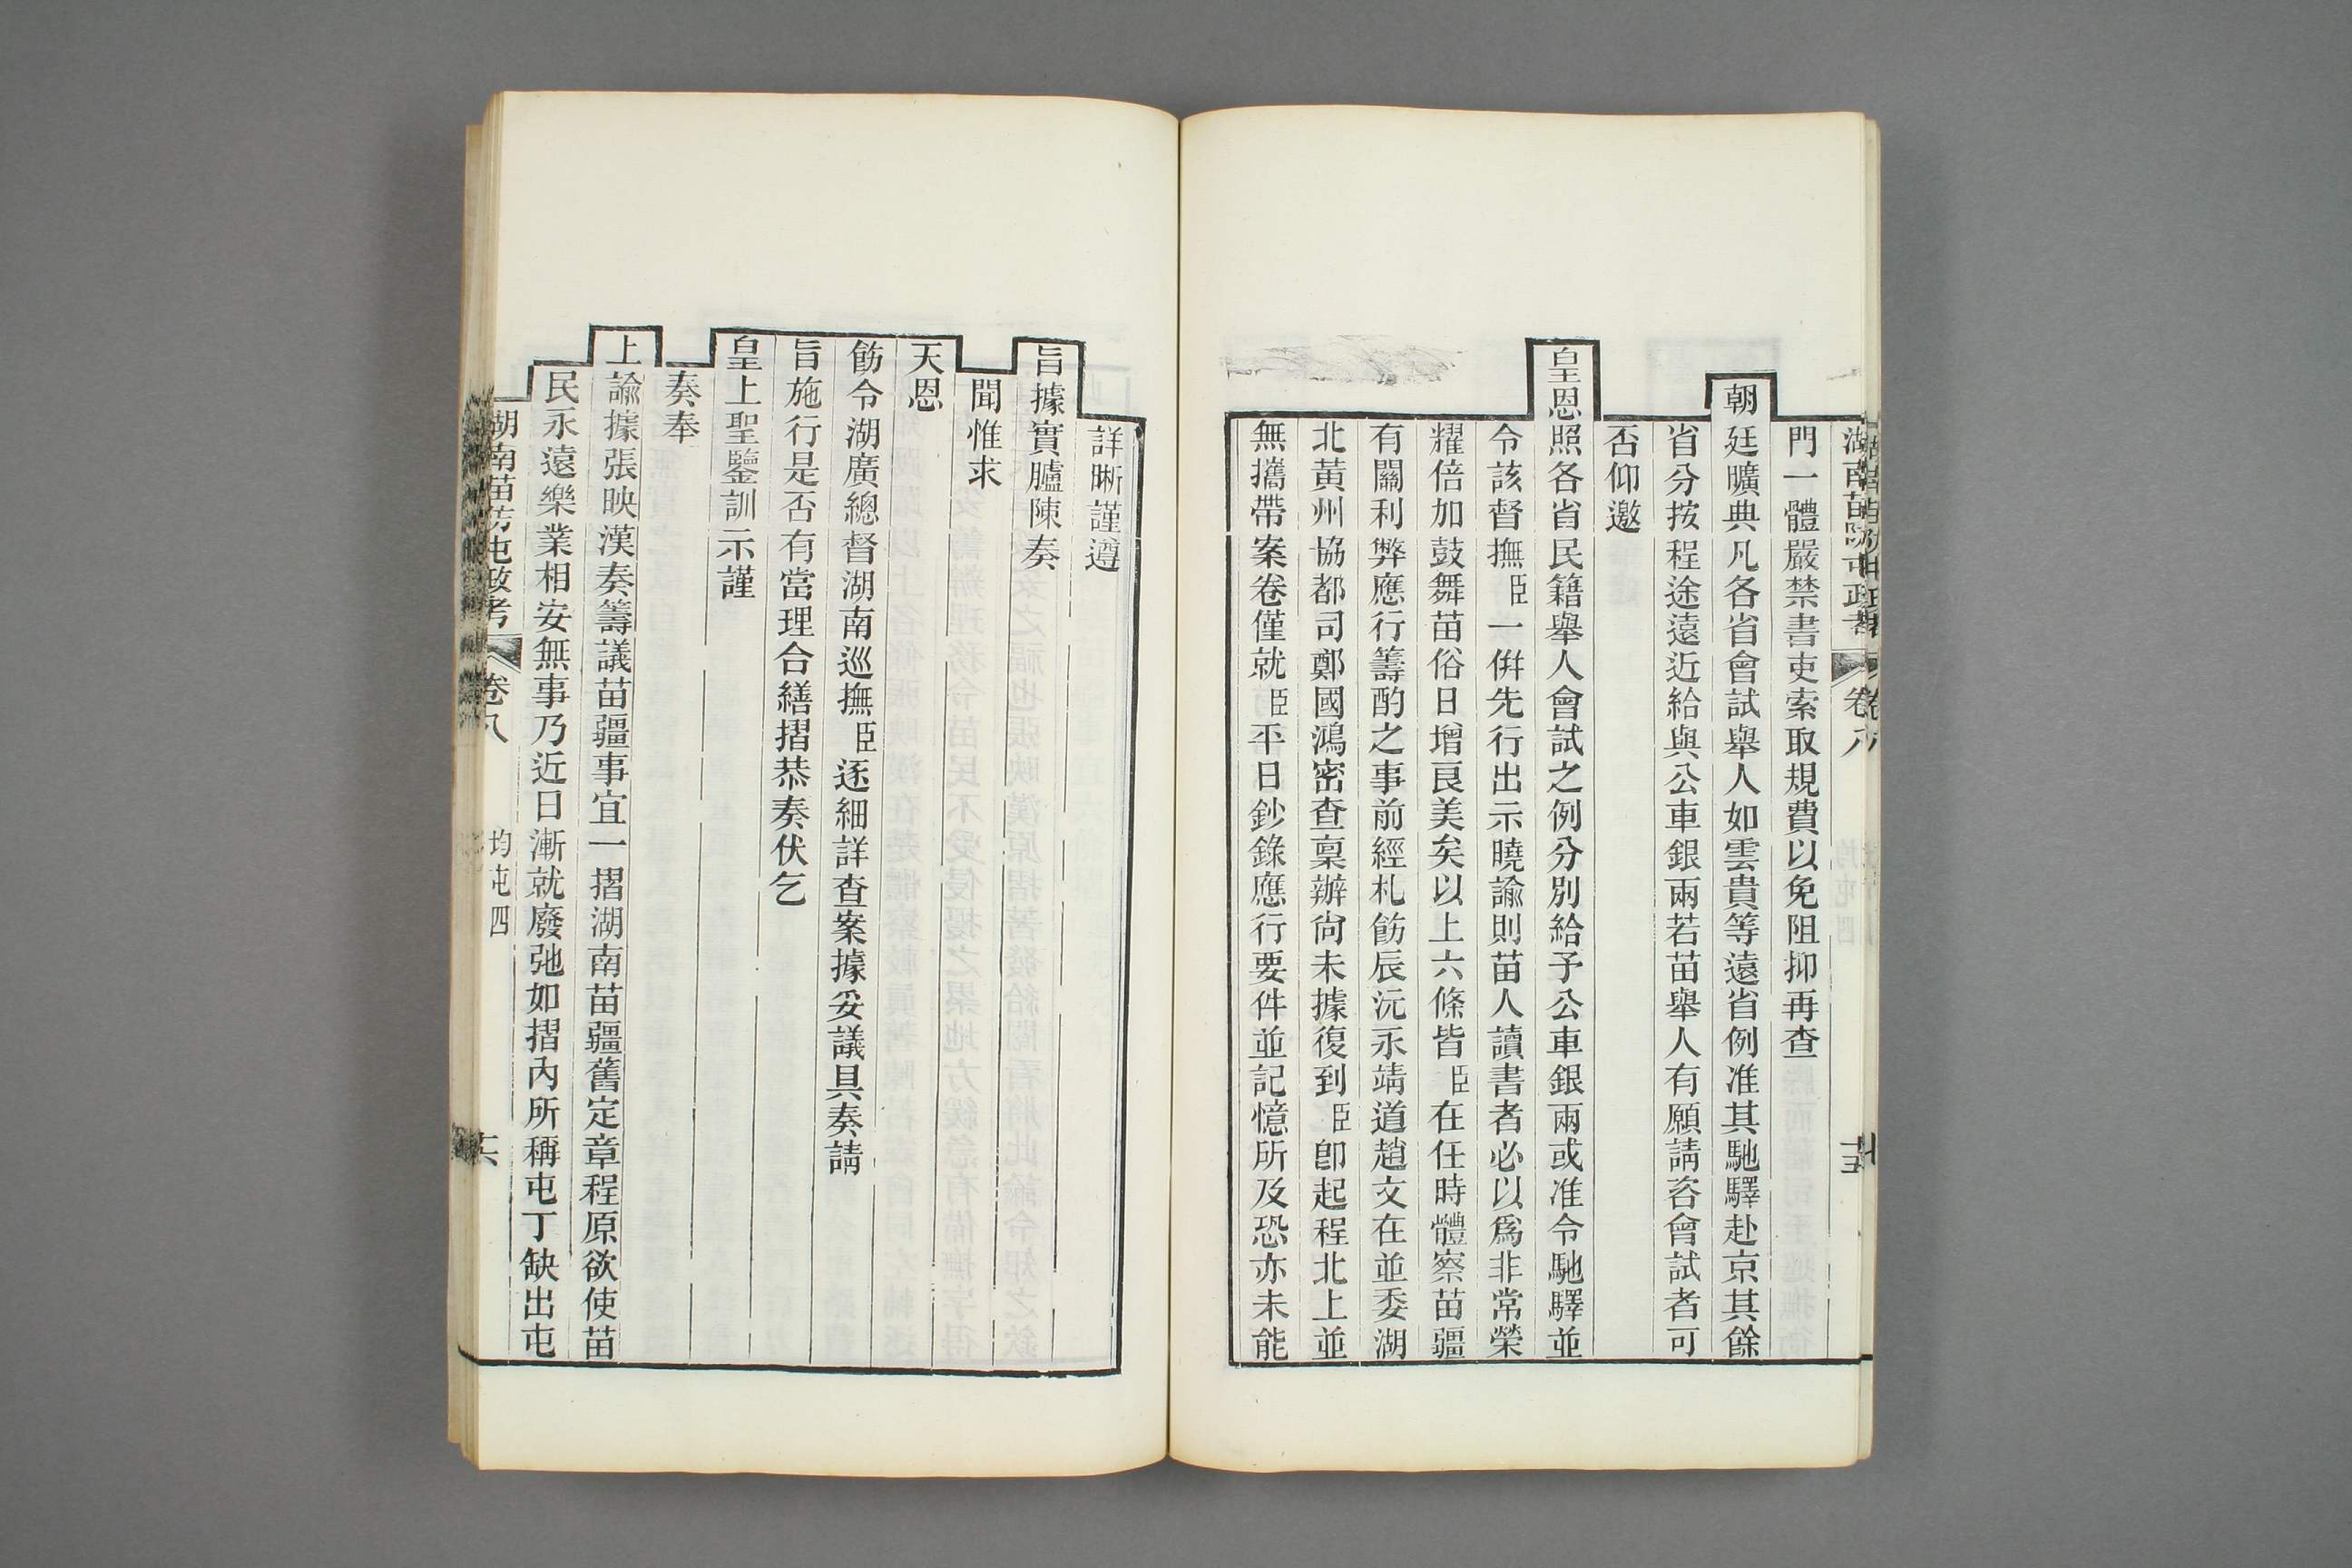 湖南苗防屯政考　卷八
門一體嚴禁書吏索取規費以免阻抑再查
朝廷曠典凡各省會試舉人如雲貴等遠省例准其馳驛赴京其餘
省分按程途遠近給與公車銀兩若苗舉人有願請咨會試者可
否仰邀
皇恩照各省民籍舉人會試之例分別給予公車銀兩或准令馳驛並
令該督撫臣一倂先行出示曉諭則苗人讀書者必以爲非常榮
耀倍加鼓舞苗俗日增良美矣以上六條皆臣在任時體察苗疆
有關利弊應行籌酌之事前經札飭辰沅永靖道趙文在並委湖
北黃州協都司鄭國鴻密查稟辦尙未據復到臣卽起程北上並
無攜帶案卷僅就臣平日鈔錄應行要件並記憶所及恐亦未能
詳晰謹遵
旨據實臚陳奏
聞惟求
天恩
飭令湖廣總督湖南巡撫臣逐細詳查案據妥議具奏請
旨施行是否有當理合繕摺恭奏伏乞
皇上聖鑒訓示謹
奏奉
上諭據張映漢奏籌議苗疆事宜一摺湖南苗疆舊定章程原欲使苗
民永遠樂業相安無事乃近日漸就廢弛如摺內所稱屯丁缺出屯
湖南苗防屯政考　卷八　均屯四　十六